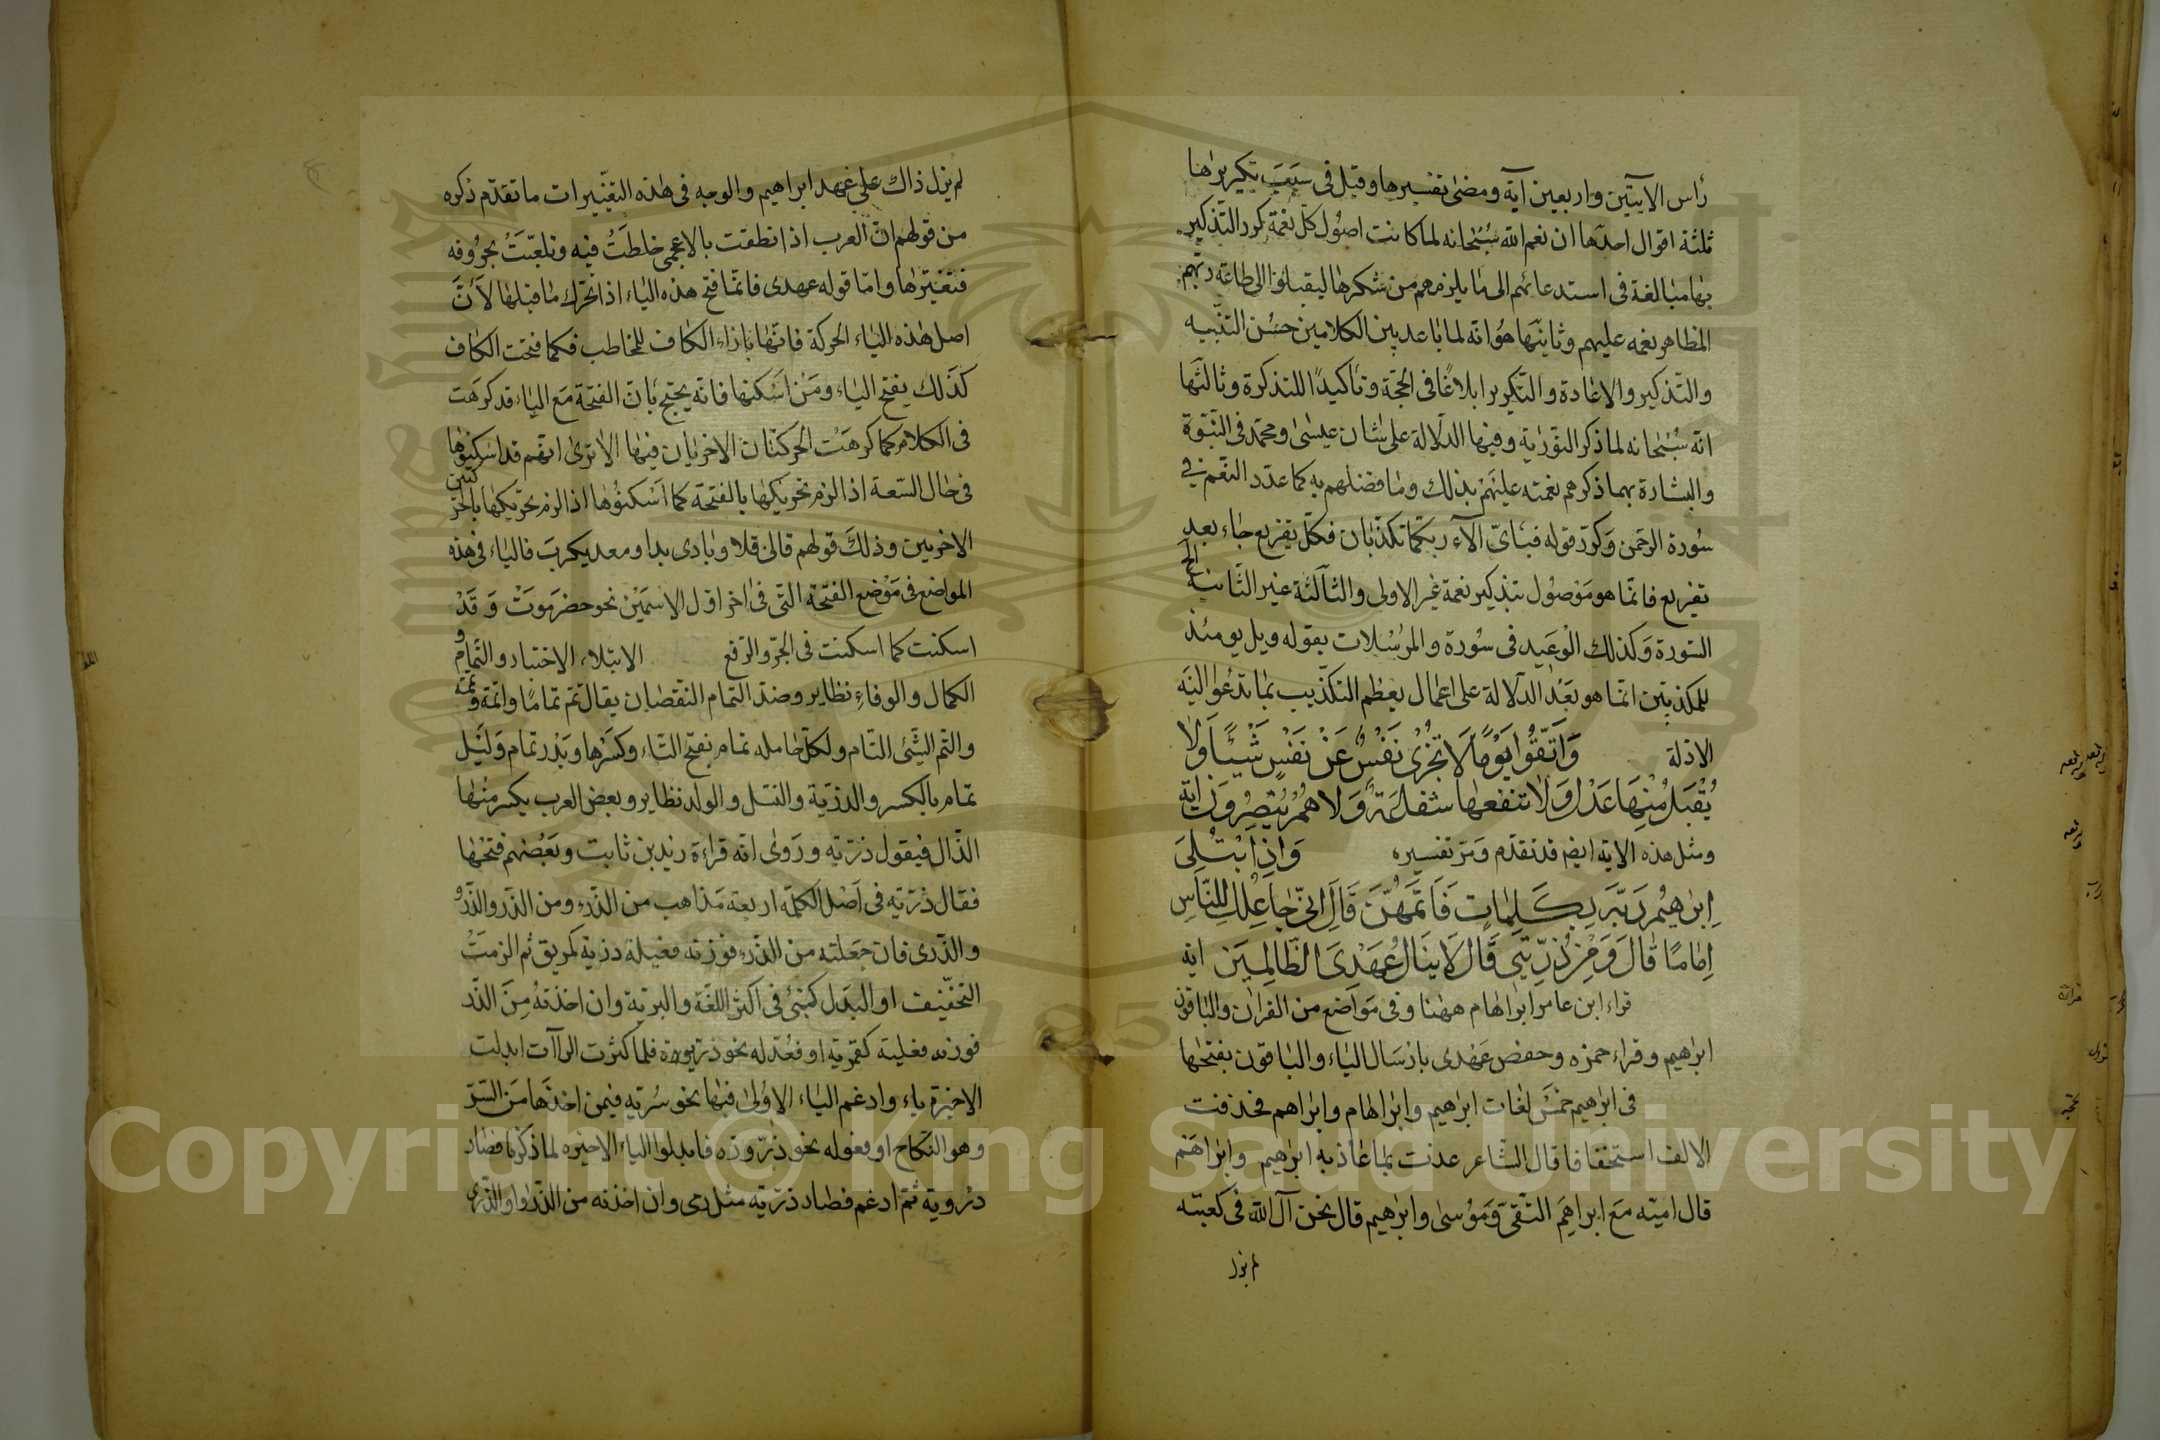 رأس الآيتين واربعين آية ومضى تفسيرها وقيل في سبب تكريرها
ثلثة اقوال احدها ان نعم الله سبحانه لما كانت اصول كل نعمة كرر التذكير
بها مبالغة في استدعائهم الى ما يلزمهم من شكرها ليقبلوا الى طاعة ربهم
المظاهر نعمه عليهم وثانيها هو انه لما باعد بين الكلامين حسن التنبيه
والتذكير والاعادة والتكرير ابلاغا في الحجة وتأكيدا للتذكرة وثالثها
انه سبحانه لما ذكر التورية وفيها الدلالة على شان عيسى ومحمد في النبوة
والبشارة بهما ذكرهم نعمته عليهم بذلك وما فضلهم به كما عدد النعم في
سورة الرحمن وكرر قوله فبأي آلآء ربكما تكذبان فكل تقريع جاء بعد
تقريع فانما هو موصول بتذكير نعمة غير الاولى والثالثة غير الثانية الخ
السورة وكذلك الوعيد في سورة والمرسلات بقوله ويل يومئذ
للمكذبين انما هو بعد الدلالة على اعمال يعظم التكذيب بما تدعوا اليه
الادلة واتقوا يوما لا تجزي نفس عن نفس شيئا ولا
يقبل منها عدل ولا تنفعها شفاعة ولا هم ينصرون اية
ومثل هذه الاية ايضا قد تقدم ومر تفسيره واذ ابتلى
ابرهيم ربه بكلمات فاتمهن قال اني جاعلك للناس
اماما قال ومن ذريتي قال لا ينال عهدي الظالمين اية
قراء ابن عامر ابراهام ههنا وفي مواضع من القران والباقون
ابرهيم وقراء حمزه وحفص عهدي بارسال الياء والباقون بفتحها
في ابرهيم خمس لغات ابرهيم وابراهام وابراهم فحذفت
الالف استخفافا قال الشاعر عذت بما عاذ به ابرهيم وابراهم
قال امية مع ابراهم التقي وموسى وابرهيم قال نحن آل الله في كعبته
لم يزل
لم يزل ذاك على عهد ابراهيم والوجه في هذه التغييرات ما تقدم ذكره
من قولهم ان العرب اذا نطقت بالاعجمي خلطت فيه وتلعبت بحروفه
فتغيرها واما قوله عهدي فانما فتح هذه الياء اذا تحرك ما قبلها لأن
اصل هذه الياء الحركة فانها بازاء الكاف للمخاطب فكما فتحت الكاف
كذلك يفتح الياء ومن اسكنها فانه يحتج بان الفتحة مع الياء قد كرهت
في الكلام كما كرهت الحركتان الاخريان فيها الا ترى انهم قد اسكنوها
في حال السعة اذا لزم تحريكها بالفتحة كما اسكنوها اذا لزم تحريكها بالحركتين
الاخريين وذلك قولهم قالي قلا وبادي بدا ومعديكرب فالياء في هذه
المواضع في موضع الفتحة التي في اخر اول الاسمين نحو حضرموت وقد
اسكنت كما اسكنت في الجر والرفع الابتلاء الاختبار والتمام و
الكمال والوفاء نظاير وضد التمام النقصان يقال تم تماما واتمه وتممه
والتم الشئ التام ولكل حامله تمام بفتح التاء وكسرها وبدر تمام وليل
تمام بالكسر والذرية والنسل والولد نظاير وبعض العرب يكسر منها
الذال فيقول ذرية وروى انه قراءة زيد بن ثابت وبعضهم فتحها
فقال ذرية في اصل الكلمة اربعة مذاهب من الذرء ومن الذر والذرو
والذري فان جعلته من الذرء فوزنه فعيلة درية كمريق ثم الزمت
التخفيف او البدل كنبي في اكثر اللغة والبرية وان اخذته من الذر
فوزنه فعلية كقمرية او فعلولة نحو ذرورة فلما كثرت الراآت ابدلت
الاخيرة ياء وادغم الياء الاولى فيها نحو سرية فيمن اخذها من السر
وهو النكاح او فعوله نحو ذرورة فابدلوا الياء الاخيره لما ذكرنا فصار
دروية ثم ادغم فصار ذرية مثل ومى وان اخذته من الذرو او الذري
Copyright © King Saud University
1957